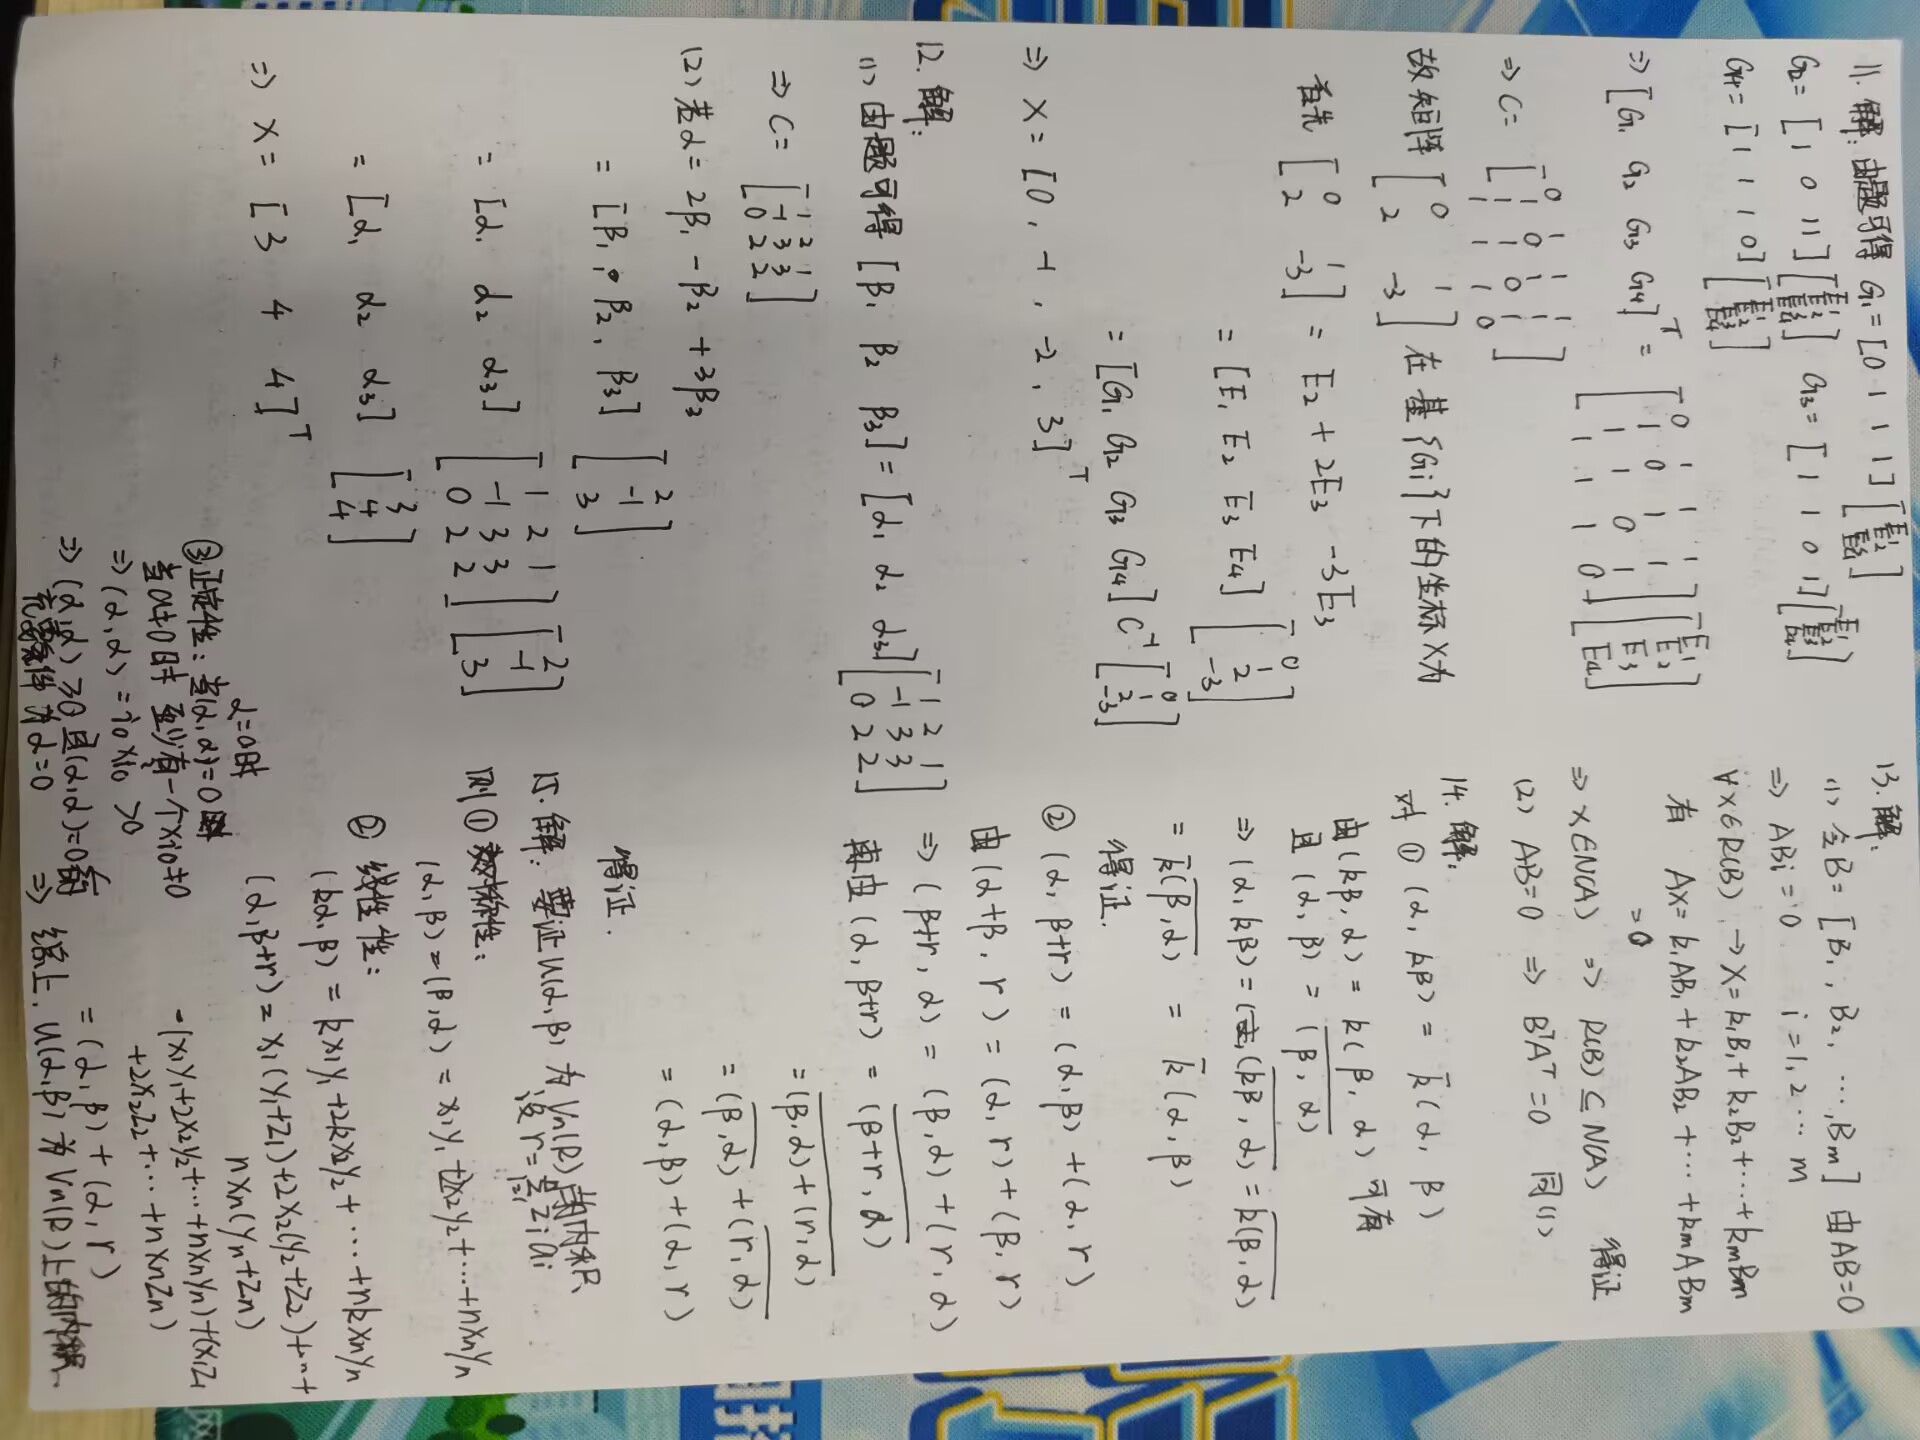 11. 解: 由题可得 G₁ = [0 1 1 1] [E₁ E₂ E₃ E₄]
G₂ = [1 0 1 1] [E₁ E₂ E₃ E₄] G₃ = [1 1 0 1] [E₁ E₂ E₃ E₄]
G₄ = [1 1 1 0] [E₁ E₂ E₃ E₄]
⇒ [G₁ G₂ G₃ G₄]ᵀ = [0 1 1 1; 1 0 1 1; 1 1 0 1; 1 1 1 0] [E₁ E₂ E₃ E₄]
⇒ C = [0 1 1 1; 1 0 1 1; 1 1 0 1; 1 1 1 0]
故矩阵 [0 1; 2 -3] 在基{Gi}下的坐标X为
首先 [0 1; 2 -3] = E₂ + 2E₃ -3E₃
= [E₁ E₂ E₃ E₄] [0; 1; 2; -3]
= [G₁ G₂ G₃ G₄] C⁻¹ [0; 1; 2; -3]
⇒ X = [0, -1, -2, 3]ᵀ
12. 解:
(1) 由题可得 [β₁ β₂ β₃] = [α₁ α₂ α₃] [1 2 1; -1 3 3; 0 2 2]
⇒ C = [1 2 1; -1 3 3; 0 2 2]
(2) 若α = 2β₁ - β₂ + 3β₃
= [β₁, β₂, β₃] [2; -1; 3]
= [α₁ α₂ α₃] [1 2 1; -1 3 3; 0 2 2] [2; -1; 3]
= [α₁ α₂ α₃] [3; 4; 4]
⇒ X = [3 4 4]ᵀ
13. 解:
(1) 令B = [B₁, B₂, …, Bm] 由AB=0
⇒ ABi = 0 i=1, 2 … m
∀x∈R(B) → X = k₁B₁ + k₂B₂ + … + kmBm
有 AX = k₁AB₁ + k₂AB₂ + … + kmABm
= 0
⇒ X∈N(A) ⇒ R(B) ⊆ N(A) 得证
(2) AB=0 ⇒ BᵀAᵀ=0 同(1)
14. 解:
对 ① (α, kβ) = k̄(α, β)
由(kβ, α) = k(β, α) 可有
且 (α, β) = \overline{(β, α)}
⇒ (α, kβ) = \overline{(kβ, α)} = \overline{k(β, α)}
= \overline{k(β, α)} = k̄(α, β)
得证.
② (α, β+r) = (α, β) + (α, r)
由(α+β, r) = (α, r) + (β, r)
⇒ (β+r, α) = (β, α) + (r, α)
再由 (α, β+r) = \overline{(β+r, α)}
= \overline{(β, α) + (r, α)}
= \overline{(β, α)} + \overline{(r, α)}
= (α, β) + (α, r)
得证.
15. 解: 要证 u(α, β) 为 Vn(R)的内积
设 r = Σ zi ai
则① 对称性:
(α, β) = (β, α) = x₁y₁ + 2x₂y₂ + … + nxnyn
② 线性性:
(kα, β) = kx₁y₁ + 2kx₂y₂ + … + nkxnyn
(α, β+r) = x₁(y₁+z₁) + 2x₂(y₂+z₂) + … +
nxn(yn+zn)
= (x₁y₁ + 2x₂y₂ + … + nxnyn) + (x₁z₁
+ 2x₂z₂ + … + nxnzn)
= (α, β) + (α, r)
③正定性: 当(α, α)=0时
α=0时
当α≠0时 至少有一个xi₀≠0
⇒ (α, α) = i₀xi₀² >0
⇒ (α, α) ≥0 且(α, α)=0的
充要条件为α=0
⇒ 综上. u(α, β) 为 Vn(R)上的内积.